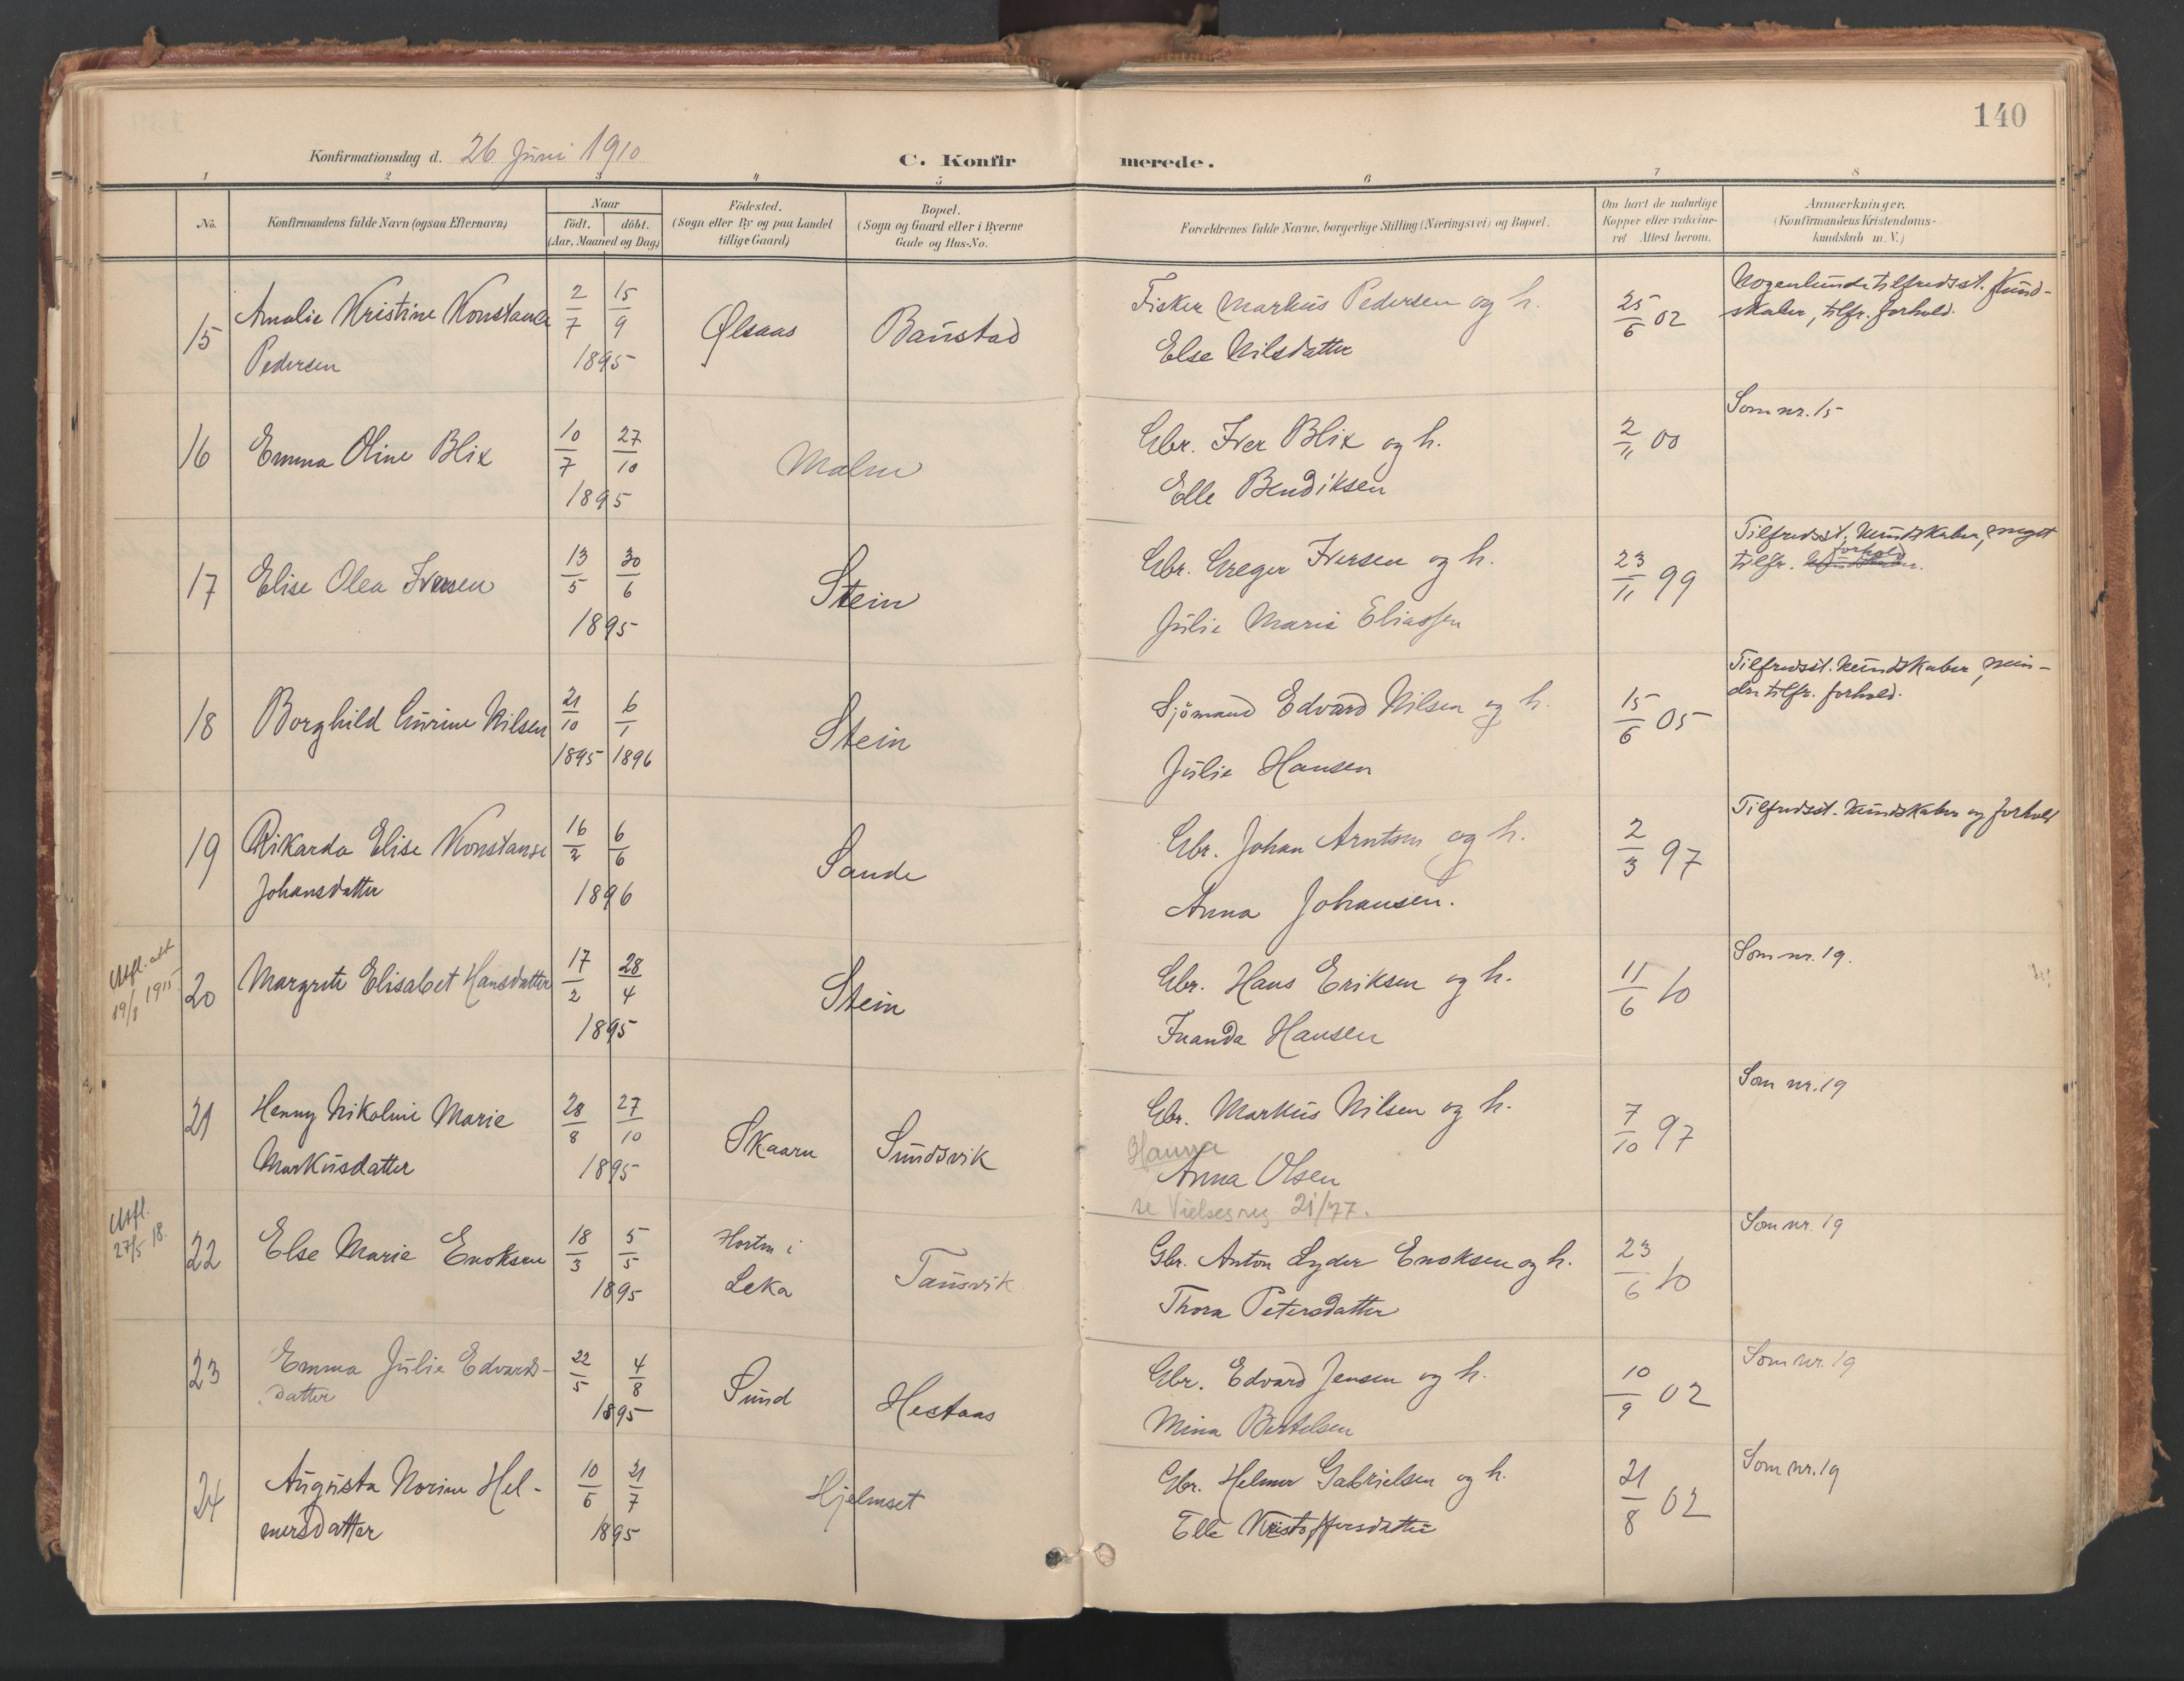 140
Konfirmationsdag d. 26 Juni 1910
C. Konfirmerede.
1 2 3 4 5 6 7 8
No.
Konfirmandens fulde Navn (ogsaa Efternavn)
Naar
født. døbt.
(Aar, Maaned og Dag)
Födested.
(Sogn eller By og paa Landet
tillige Gaard)
Bopæl.
(Sogn og Gaard eller i Byerne
Gade og Hus-No.
Forældrenes fulde Navne, borgerlige Stilling (Næringsvei) og Bopæl.
Om havt de naturlige
Kopper eller vaccine-
ret Attest herom.
Anmærkninger.
(Konfirmandens Kristendoms-
kundskab m. V.)
15 Amalie Kristine Konstance 2/7 15/9 Ølsaas Baustad Fisker Markus Pedersen og h. 25/6 02 Nogenlunde tilfredsst. Kund-
skaber, tilfr. forhold.
Pedersen 1895 Else Nilsdatter
16 Emma Oline Blix 10/7 27/10 Malm Gbr. Iver Blix og h. 2/11 00 Som nr. 15
1895 Elle Bendiksen
17 Elise Olea Iversen 13/5 30/6 Stein Gbr. Greger Iversen og h. 23/11 99 Tilfredsst. Kundskaber, meget
tilfr. forhold
1895 Julie Marie Eliassen
18 Borghild Gurine Nilsen 21/10 6/1 Stein Sjömand Edvard Nilsen og h. 15/6 05 Tilfredsst. Kundskaber, min-
dre tilfr. forhold.
1895 1896 Julie Hansen
19 Rikarda Elise Konstanse 16/2 6/6 Sande Gbr. Johan Arntsen og h. 2/3 97 Tilfredsst. Kundskaber og forhold
Johansdatter 1896 Anna Johansen.
Utfl. att
19/8 1915
20 Margrete Elisabet Hansdatter 17/2 28/4 Stein Gbr. Hans Eriksen og h. 11/6 10 Som nr. 19.
1895 Inanda Hansen
21 Henny Nikoline Marie 28/8 27/10 Skaaru Sundsvik Gbr. Markus Nilsen og h. 7/10 97 Som nr. 19
Hanna
Markusdatter 1895 Anna Olsen
se Vielsesreg. 21/77.
Utfl.
27/5 18.
22 Else Marie Enoksen 18/3 5/5 Horten i Tausvik Gbr. Anton Lyder Enoksen og h. 23/6 10 Som nr. 19
1895 Leka Thora Petersdatter
23 Emma Julie Edvards- 22/5 4/8 Sund Hestaas Gbr. Edvard Jensen og h. 10/9 02 Som nr. 19
datter 1895 Mina Bertelsen
24 Augusta Norine Hel- 10/6 21/7 Hjelmset Gbr. Helmer Gabrielsen og h. 21/8 02 Som nr. 19
mersdatter 1895 Elle Kristoffersdatter